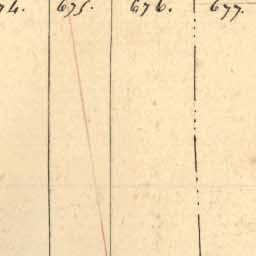 74. 675. 676. 677.